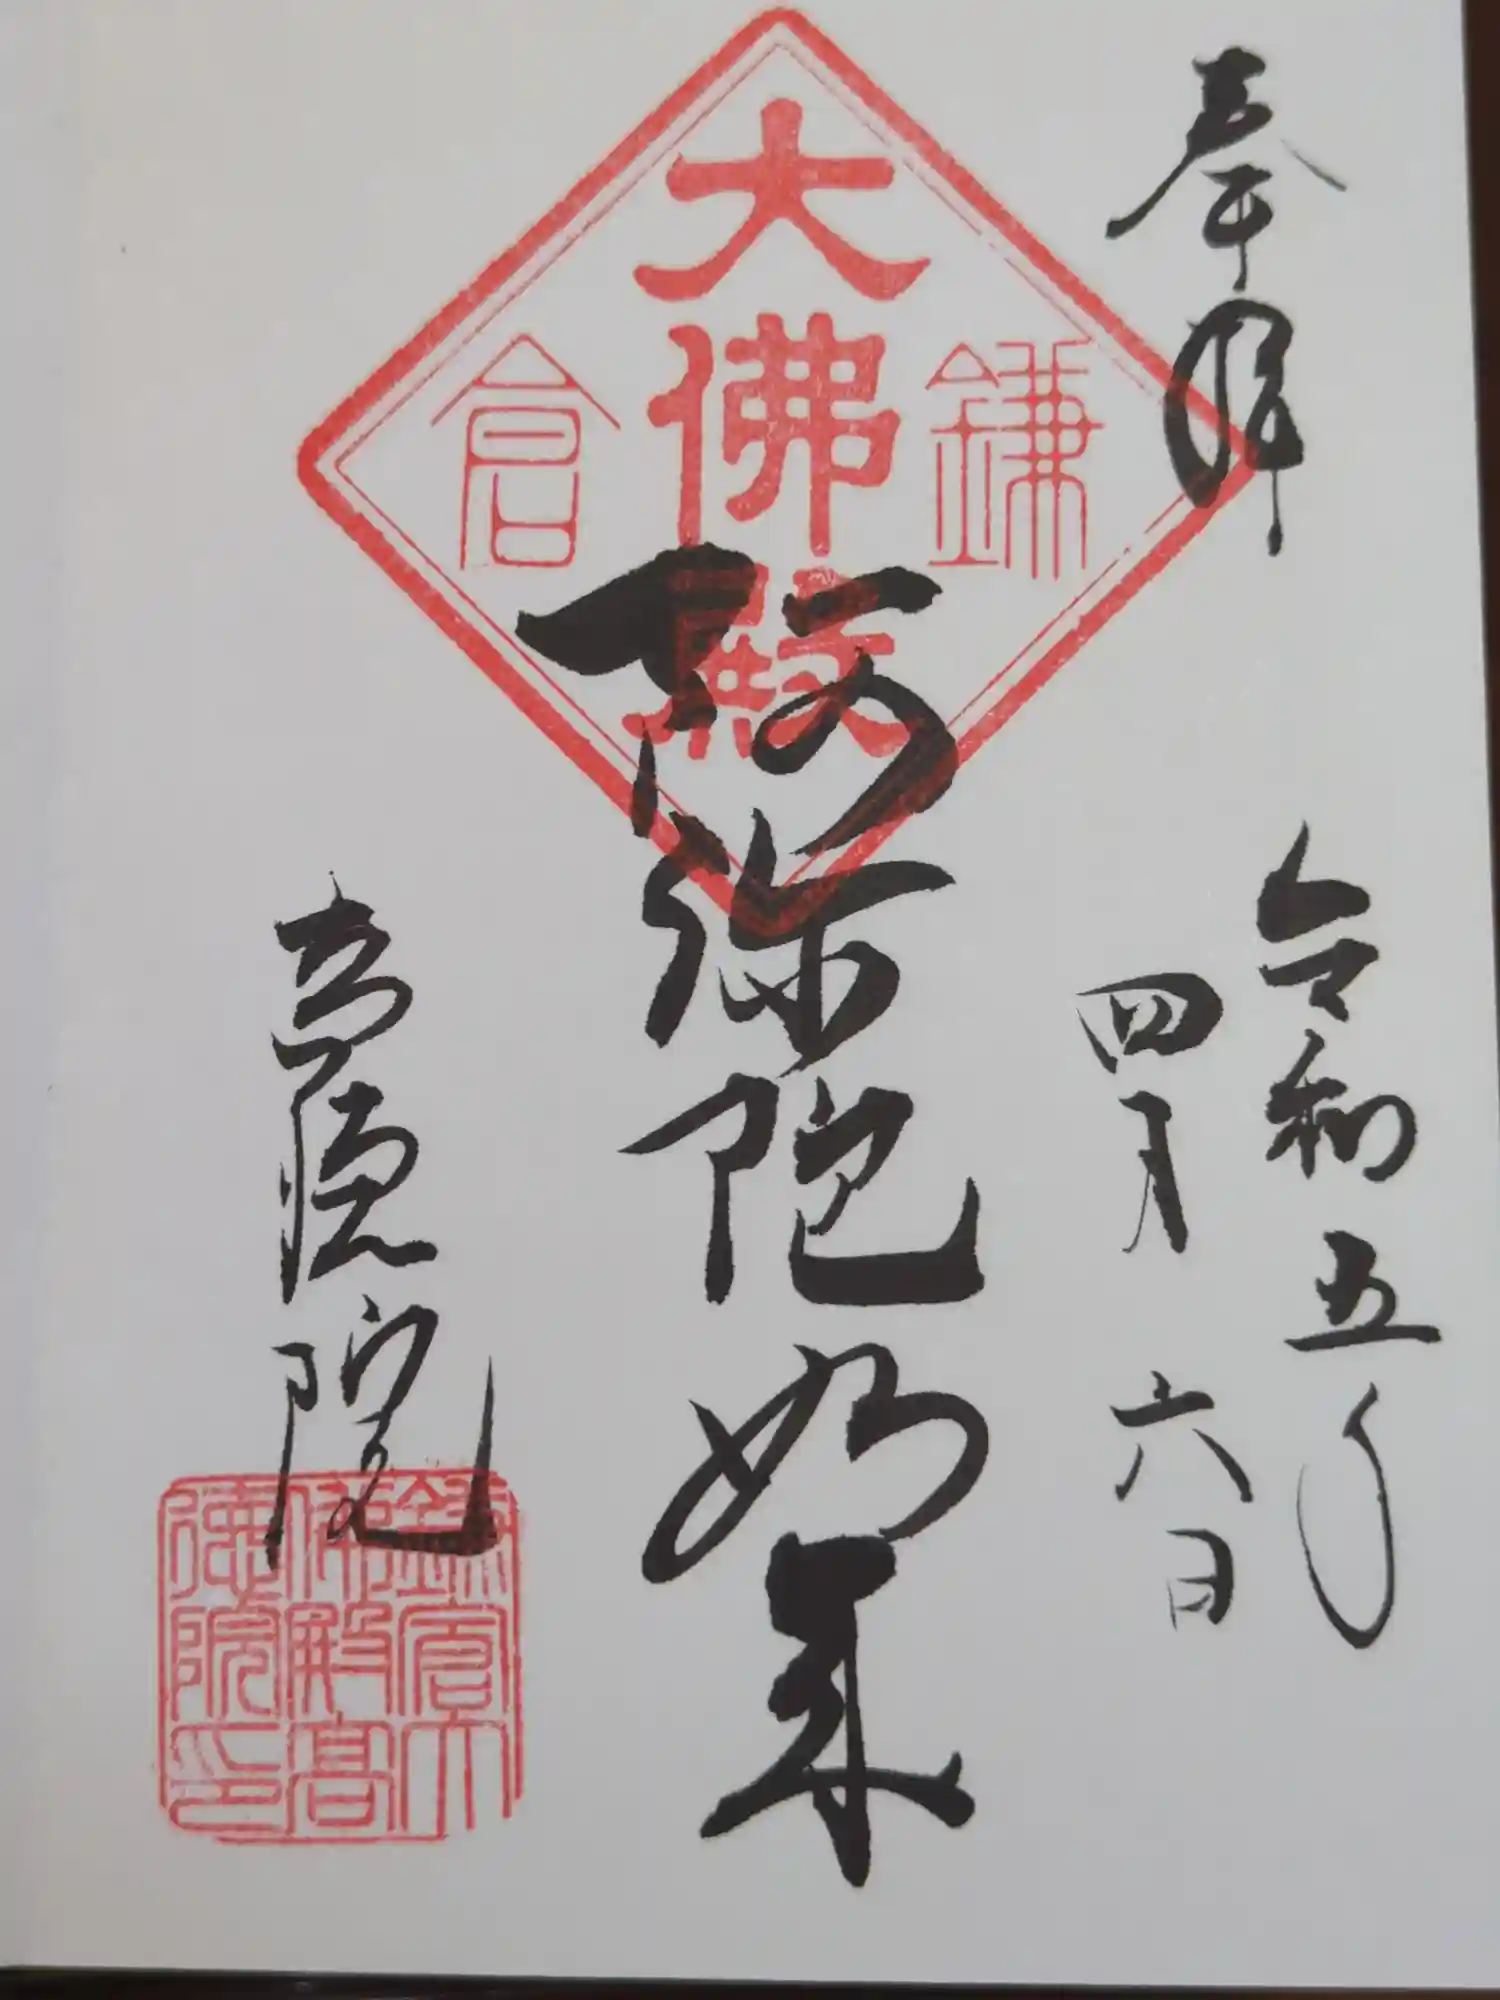 奉拝
令和五年
四月六日
鎌倉
大佛殿
阿弥陀如来
高徳院
鎌倉大
佛殿高
徳院印